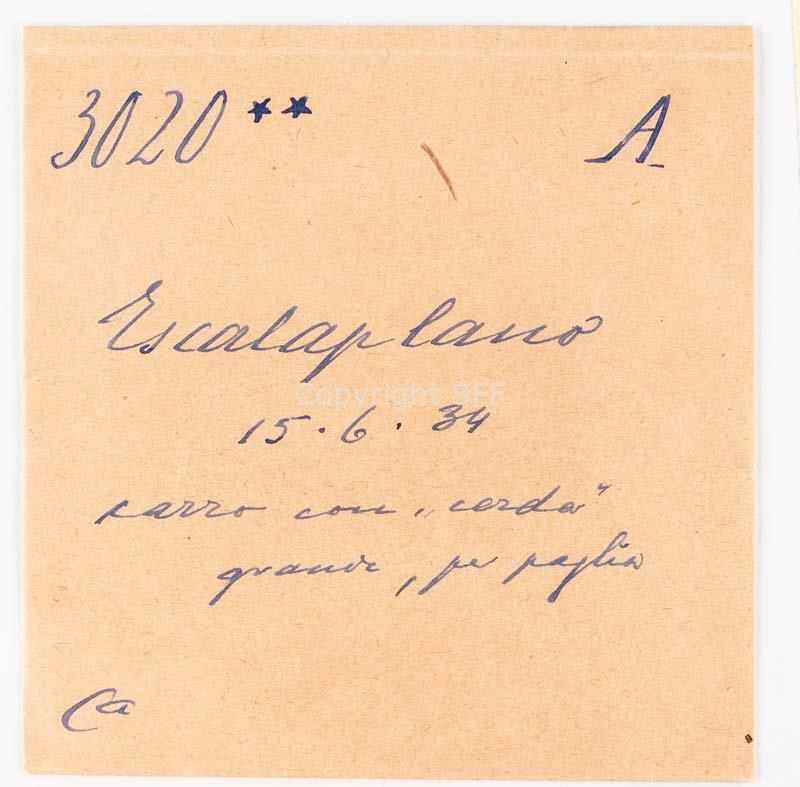 3020 ** A
Escalaplano
Copyright SFF
15.6.34
carro con „cerda"
grande, per paglia
Ca